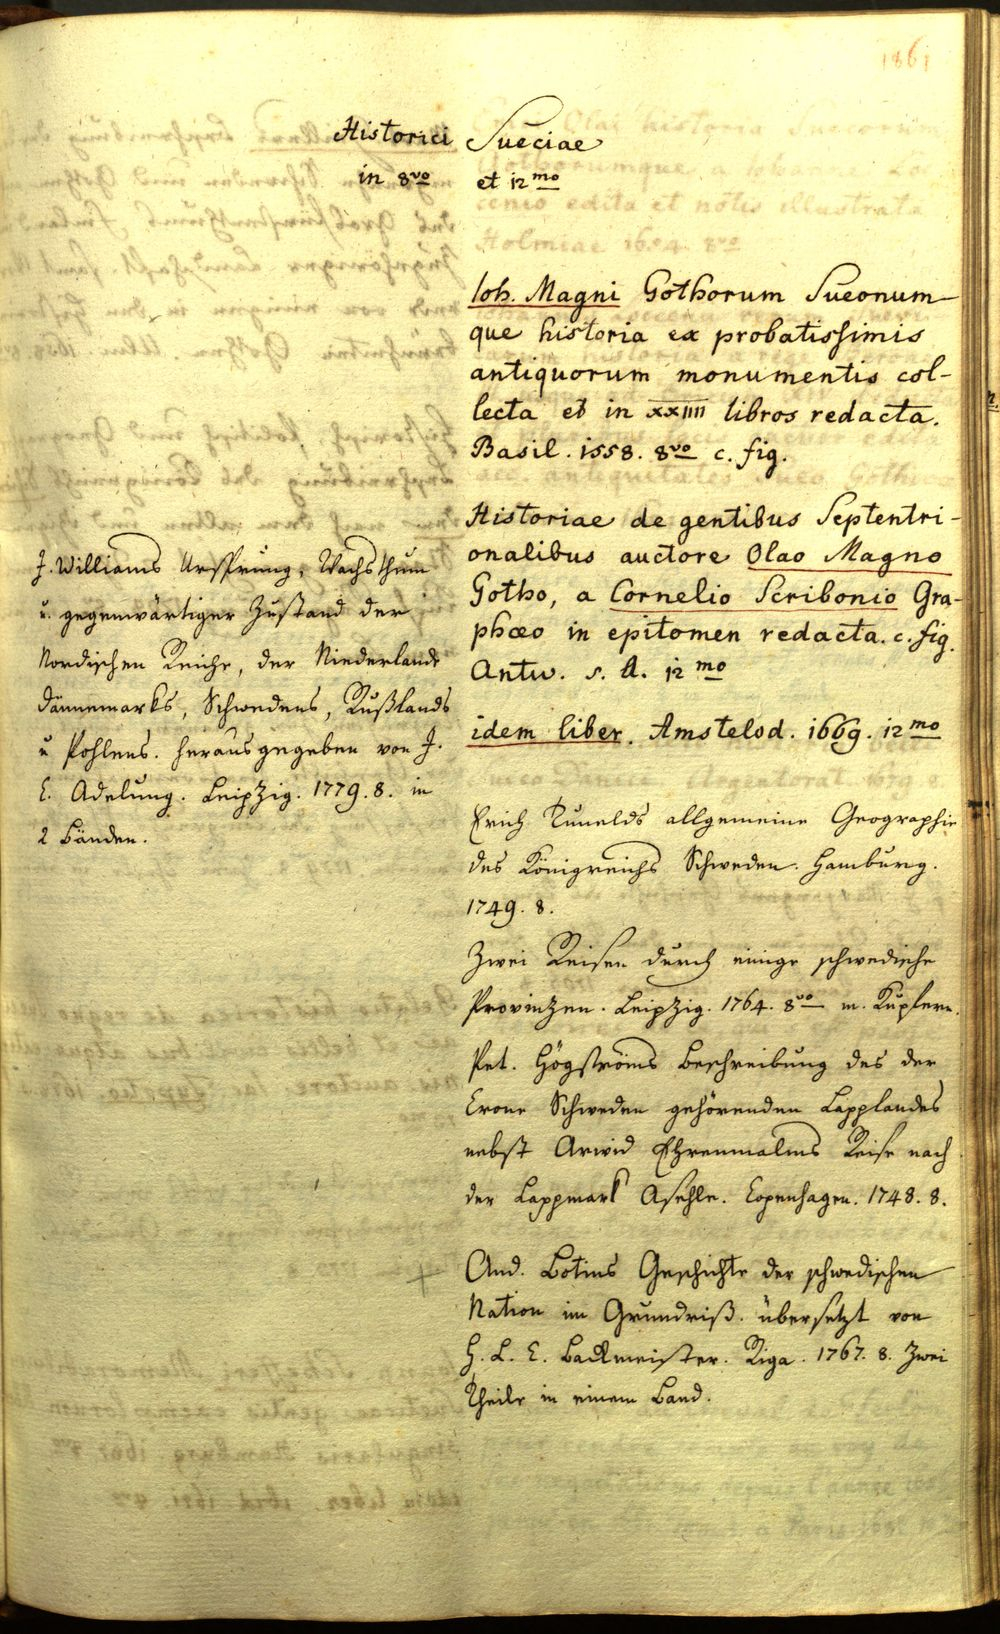 1861
Historici Sueciae
in 8vo et 12mo
Ioh. Magni Gothorum Sueonum-
que historia ex probatissimis
antiquorum monumentis col-
lecta et in XXIIII libros redacta.
Basil. 1558. 8vo c. fig.
Historiae de gentibus Septentri-
onalibus auctore Olao Magno
Gotho, a Cornelio Scribonio Gra-
phæo in epitomen redacta. c. fig.
Antw. s. A. 12mo
idem liber. Amstelod. 1669. 12mo
Erich Tunelds allgemeine Geographie
des Königreichs Schweden. Hamburg.
1749. 8.
Zwei Reisen durch einige schwedische
Provinzen. Leipzig. 1764. 8vo m. Kupfern.
Pet. Högströms Beschreibung des der
Crone Schweden gehörenden Lapplandes
nebst Arwid Ehrenmalms Reise nach
der Lappmark Asehle. Copenhagen. 1748. 8.
And. Botins Geschichte der schwedischen
Nation im Grundriß. übersetzt von
H. L. C. Backmeister. Riga. 1767. 8. Zwei
Theile in einem Band.
J. Williams Ursprung, Wachsthum
u. gegenwärtiger Zustand der
Nordischen Reiche, der Niederlande
Dännemarks, Schwedens, Rußlands
u Pohlens. herausgegeben von J.
C. Adelung. Leipzig. 1779. 8. in
2 Bänden.